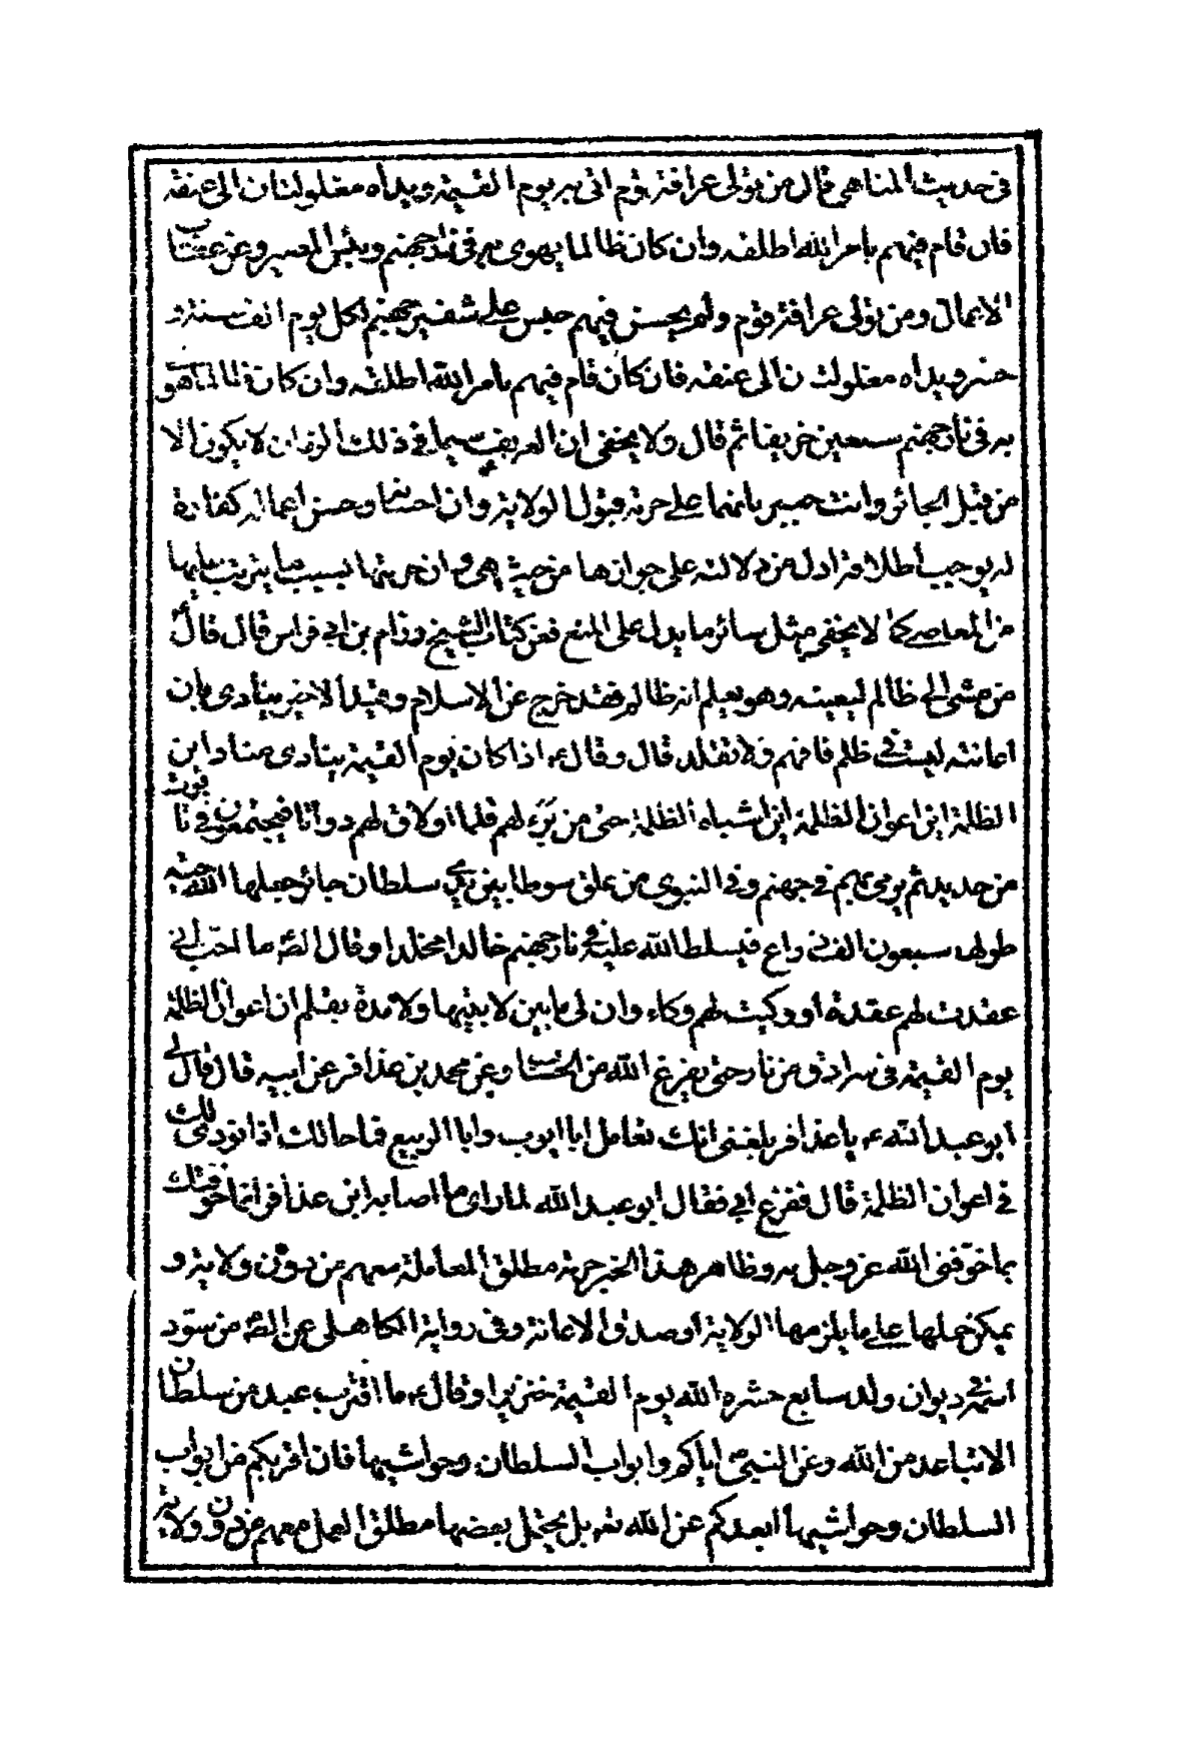 فى حديث المناهى قال من تولى عرافة قوم اتى به يوم القيمة ويداه مغلولتان الى عنقه
فان قام فيهم بامر الله اطلقه وان كان ظالما يهوى به فى نار جهنم وبئس المصير وعن عقاب
الاعمال ومن تولى عرافة قوم ولم يحسن فيهم حبس على شفير جهنم لكل يوم الف سنة و
حشر ويداه مغلولتان الى عنقه فان كان قام فيهم بامر الله اطلقه وان كان ظالما هو
به فى نار جهنم سبعين خريفا ثم قال ولا يخفى ان العريف سيما فى ذلك الزمان لا يكون الا
من قبل الجائر وانت خبير بانهما على حرمة قبول الولاية وان احسانها وحسن اعماله كفارة
له بوجب اطلاقه ادل من دلالته على جوازها من حيث هى وان حرمتها بسبب ما يترتب عليها
من المعاصى كما لا يخفى مثل سائر ما يدل على المنع فعن كتاب الشيخ ورام بن ابى فراس قال قال
من مشى الى ظالم ليعينه وهو يعلم انه ظالم فقد خرج عن الاسلام وقيد الاخير ينادى بان
اعانته ليست فى ظلم فافهم ولا تقلد قال وقالء اذا كان يوم القيمة ينادى مناد اين
الظلمة اين اعوان الظلمة اين اشباه الظلمة حتى من برىء لهم قلما اولاق لهم دواتا فيجتمعون فى تابوت
من حديد ثم يرمى بهم فى جهنم وفى النبوى من علق سوطا بين يدى سلطان جائر جعلها الله حية
طولها سبعون الف ذراع فيسلط الله عليه فى نار جهنم خالدا مخلدا وقال الصم ما احب انى
عقدت لهم عقدة او وكيت لهم وكاء وان لى ما بين لابتيها ولا مدة بقلم ان اعوان الظلمة
يوم القيمة فى سرادق من نار حتى يفرغ الله من الحساب وعن محمد بن عذافر عن ابيه قال قال لى
ابو عبد اللهء يا عذافر بلغنى انك تعامل ابا ايوب وابا الربيع فما حالك اذا نودى بك
فى اعوان الظلمة قال ففزع ابى فقال ابو عبد الله لما راى ما اصابه اين عذافر انما خوفتك
بما خوفنى الله عز وجل به وظاهر هذا الخبر حرمة مطلق المعاملة معهم من دون ولاية و
يمكن حملها على ما يلزمها الولاية او صدق الاعانة وفى رواية الكاهلى عن الصم من سود
اسمه فى ديوان ولد سابع حشره الله يوم القيمة خنزيرا وقالء ما اقترب عبد من سلطان
الا تباعد من الله وعن النبىص اياكم وابواب السلطان وحواشيها فان اقربكم من ابواب
السلطان وحواشيها ابعدكم عن الله تعم بل يحتمل بعضها مطلق العمل معهم من دون ولاية